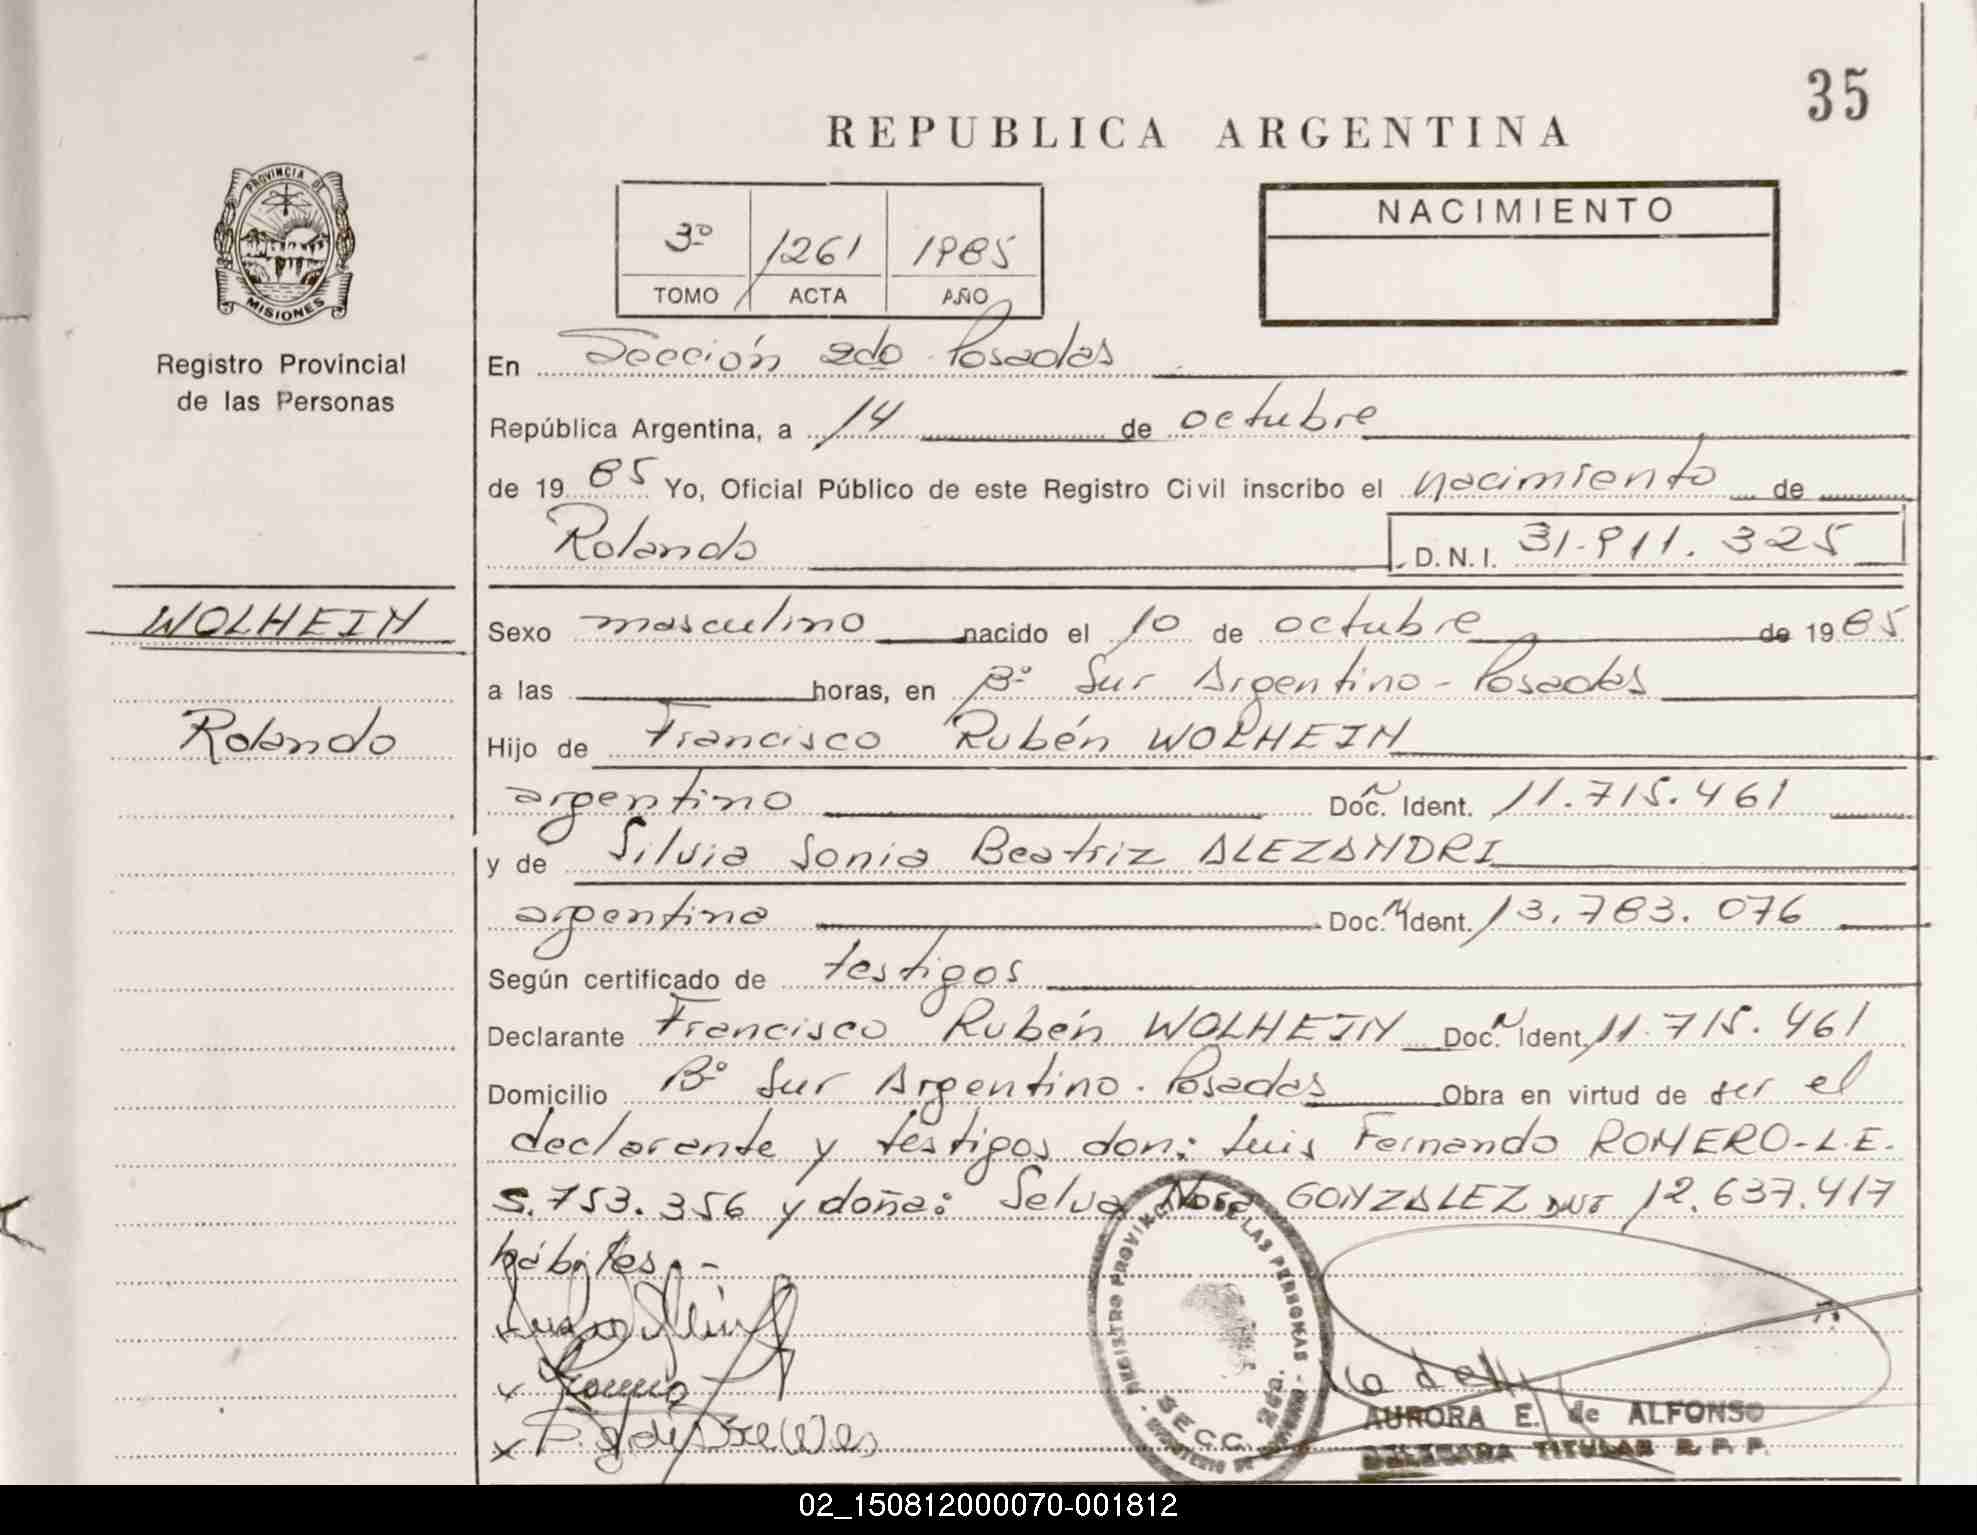 35
REPUBLICA ARGENTINA
PROVINCIA DE
MISIONES
Registro Provincial
de las Personas
3º 1261 1985
TOMO ACTA AÑO
NACIMIENTO
En Sección 2da Posadas
República Argentina, a 14 de octubre
de 19 85 Yo, Oficial Público de este Registro Civil inscribo el nacimiento de
Rolando D.N.I. 31.911.325
WOLHEIN
Rolando
Sexo masculino nacido el 10 de octubre de 1985
a las horas, en Bº Sur Argentino - Posadas
Hijo de Francisco Rubén WOLHEIN
argentino Doc. Ident. 11.715.461
y de Silvia Sonia Beatriz ALEZANDRI
argentina Doc. Ident. 13.783.076
Según certificado de testigos
Declarante Francisco Rubén WOLHEIN Doc. Ident. 11.715.461
Domicilio Bº Sur Argentino. Posadas Obra en virtud de ser el
declarante y testigos don: Luis Fernando ROMERO-L.E.
5.753.356 y doña: Selva Nora GONZALEZ DNI 12.637.417
hábiles.-
REGISTRO PROVINCIAL DE LAS PERSONAS
SECC. 2da.
MINISTERIO DE
AURORA E. de ALFONSO
DELEGADA TITULAR R. P. P.
02_150812000070-001812